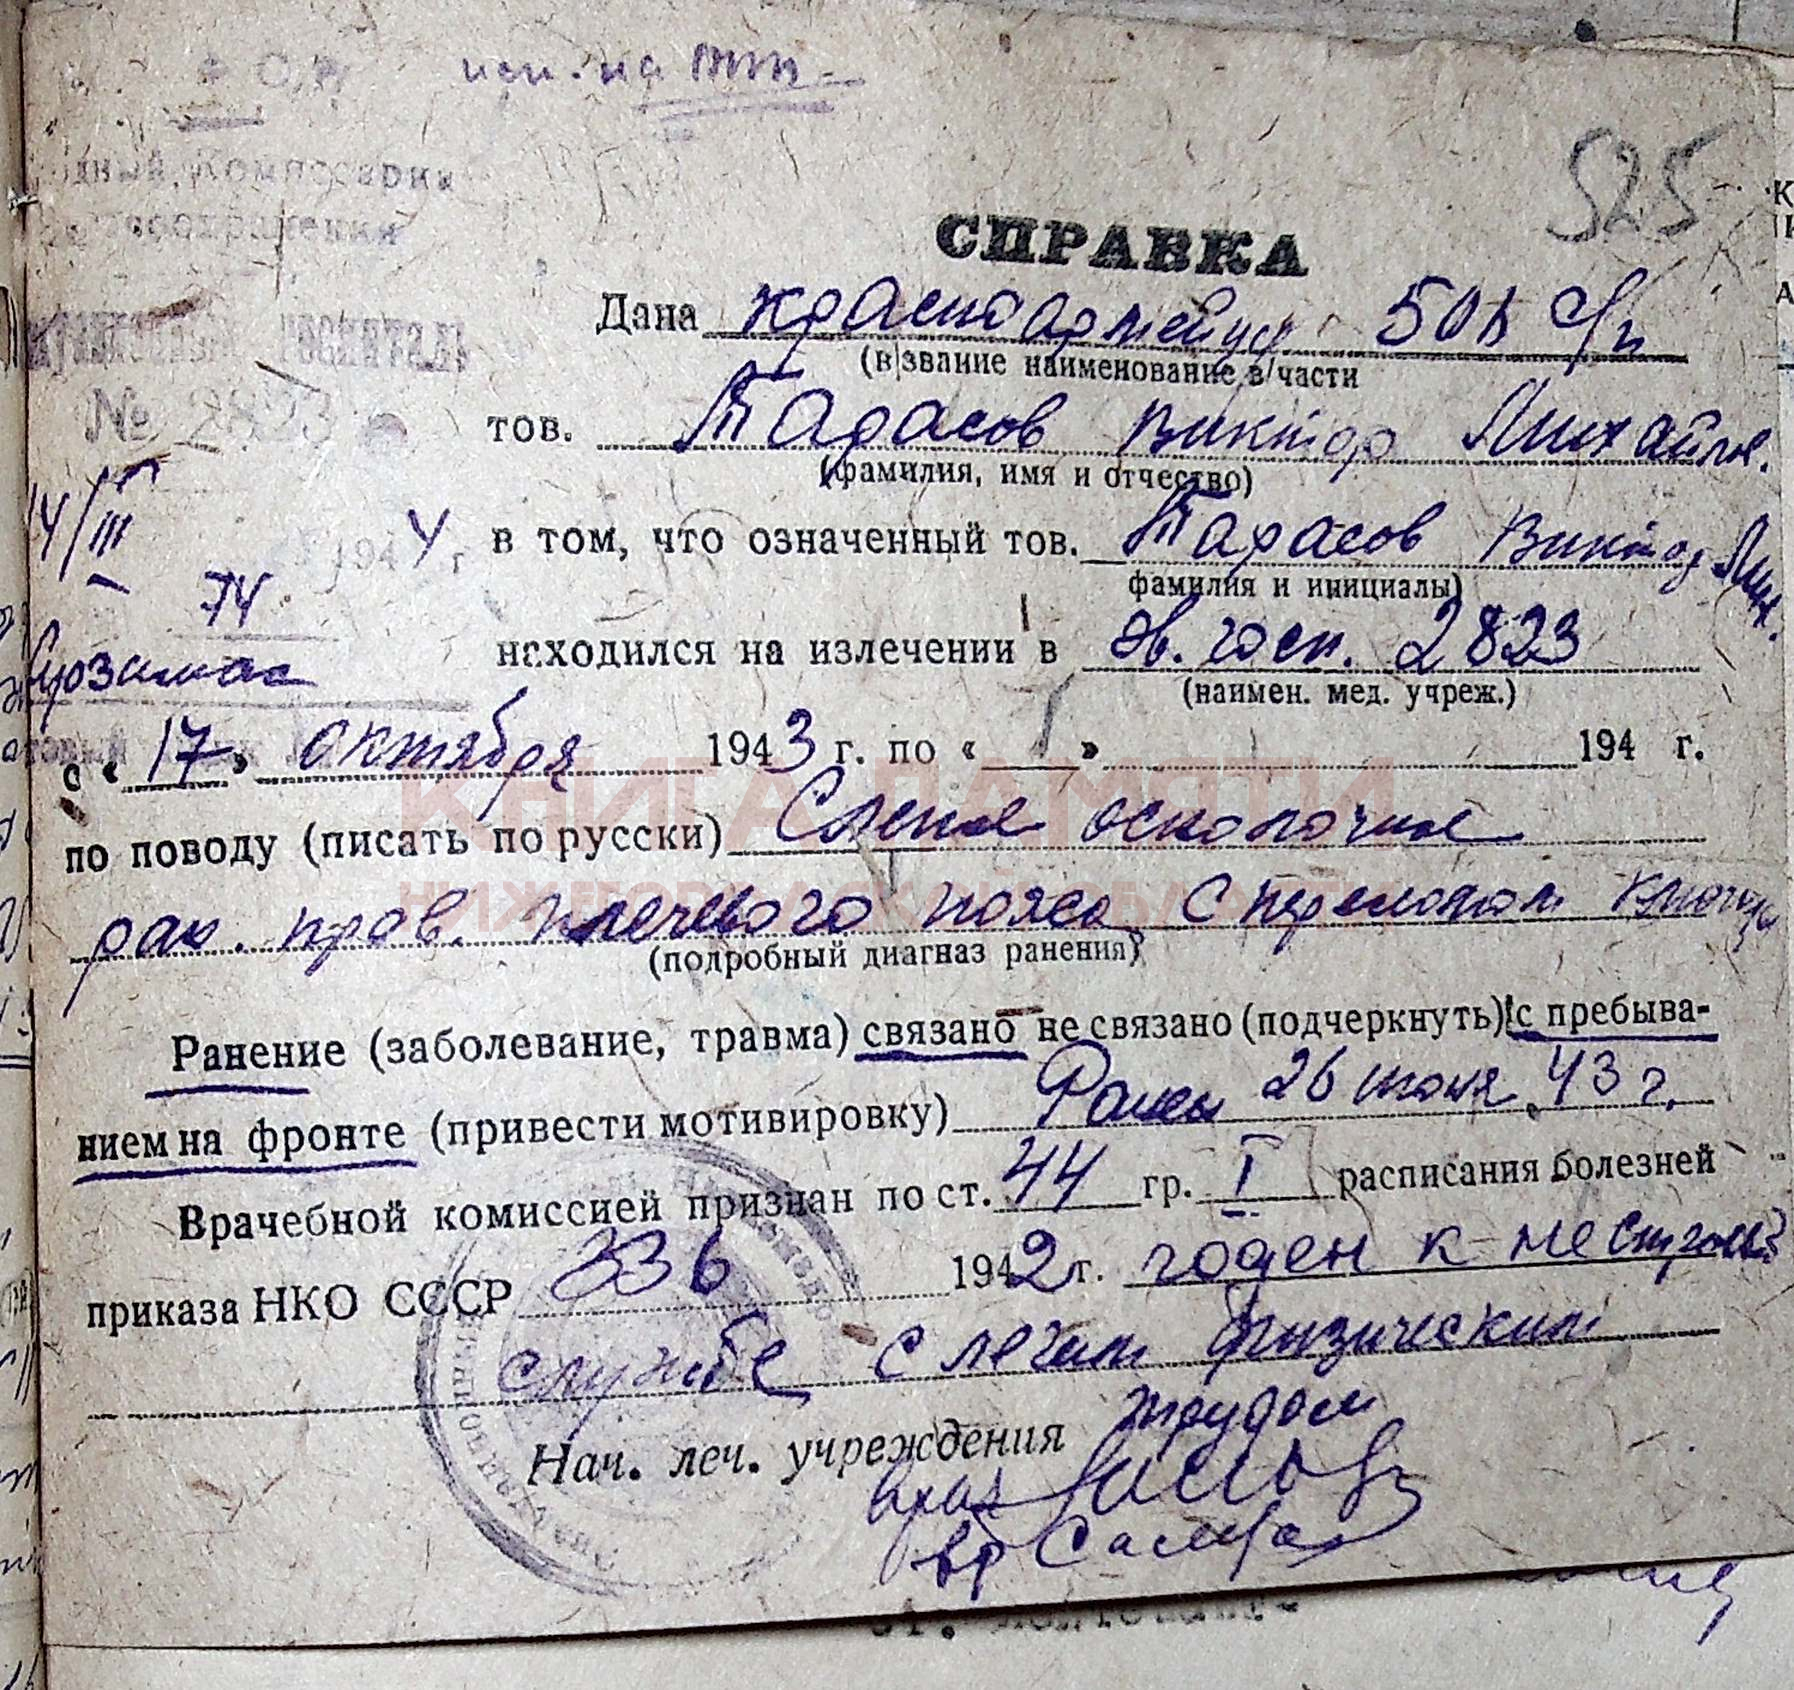 525
дный Комиссариа
воохранения
СПРАВКА
Дана красноармейцу 501 сп
(в звание наименование в/части
госпиталь
№ 2823
тов. Тарасов Виктор Михайл.
(фамилия, имя и отчество)
14/III 1944 г
в том, что означенный тов. Тарасов Виктор Мих.
фамилия и инициалы)
74
находился на излечении в эв. госп. 2823
(наимен. мед. учреж.)
с «17» октября 1943 г. по « » 194 г.
КНИГА ПАМЯТИ
по поводу (писать по русски) Слепое осколочное
НИЖЕГОРОДСКОЙ ОБЛАСТИ
ран. прав. плечевого пояса с переломом ключицы
(подробный диагназ ранения)
Ранение (заболевание, травма) связано не связано (подчеркнуть) с пребыва-
нием на фронте (привести мотивировку) Ранен 26 июля 43 г.
Врачебной комиссией признан по ст. 44 гр. I расписания болезней
приказа НКО СССР 336 1942 г. годен к нестроевой
службе с легким физическим
трудом
Нач. леч. учреждения
врач
вр